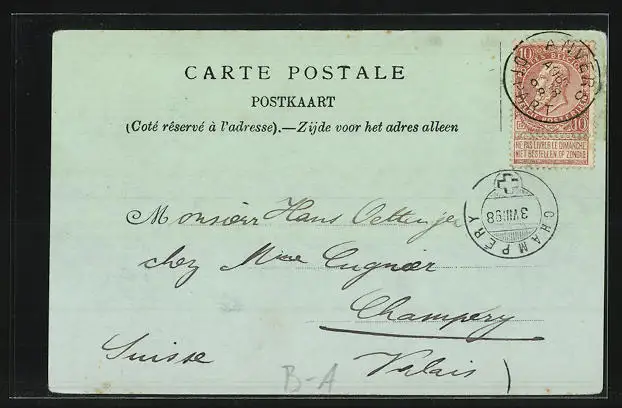 CARTE POSTALE
POSTKAART
(Coté réservé à l'adresse).—Zijde voor het adres alleen
10 10
10
NE PAS LIVRER LE DIMANCHE
NIET BESTELLEN OP ZONDAG
ANVERS
DÉPART
CHAMPÉRY
3 VIII 98
Monsieur Hans Oettinger
chez Mme Cugnier
Champery
Suisse Valais)
B-A